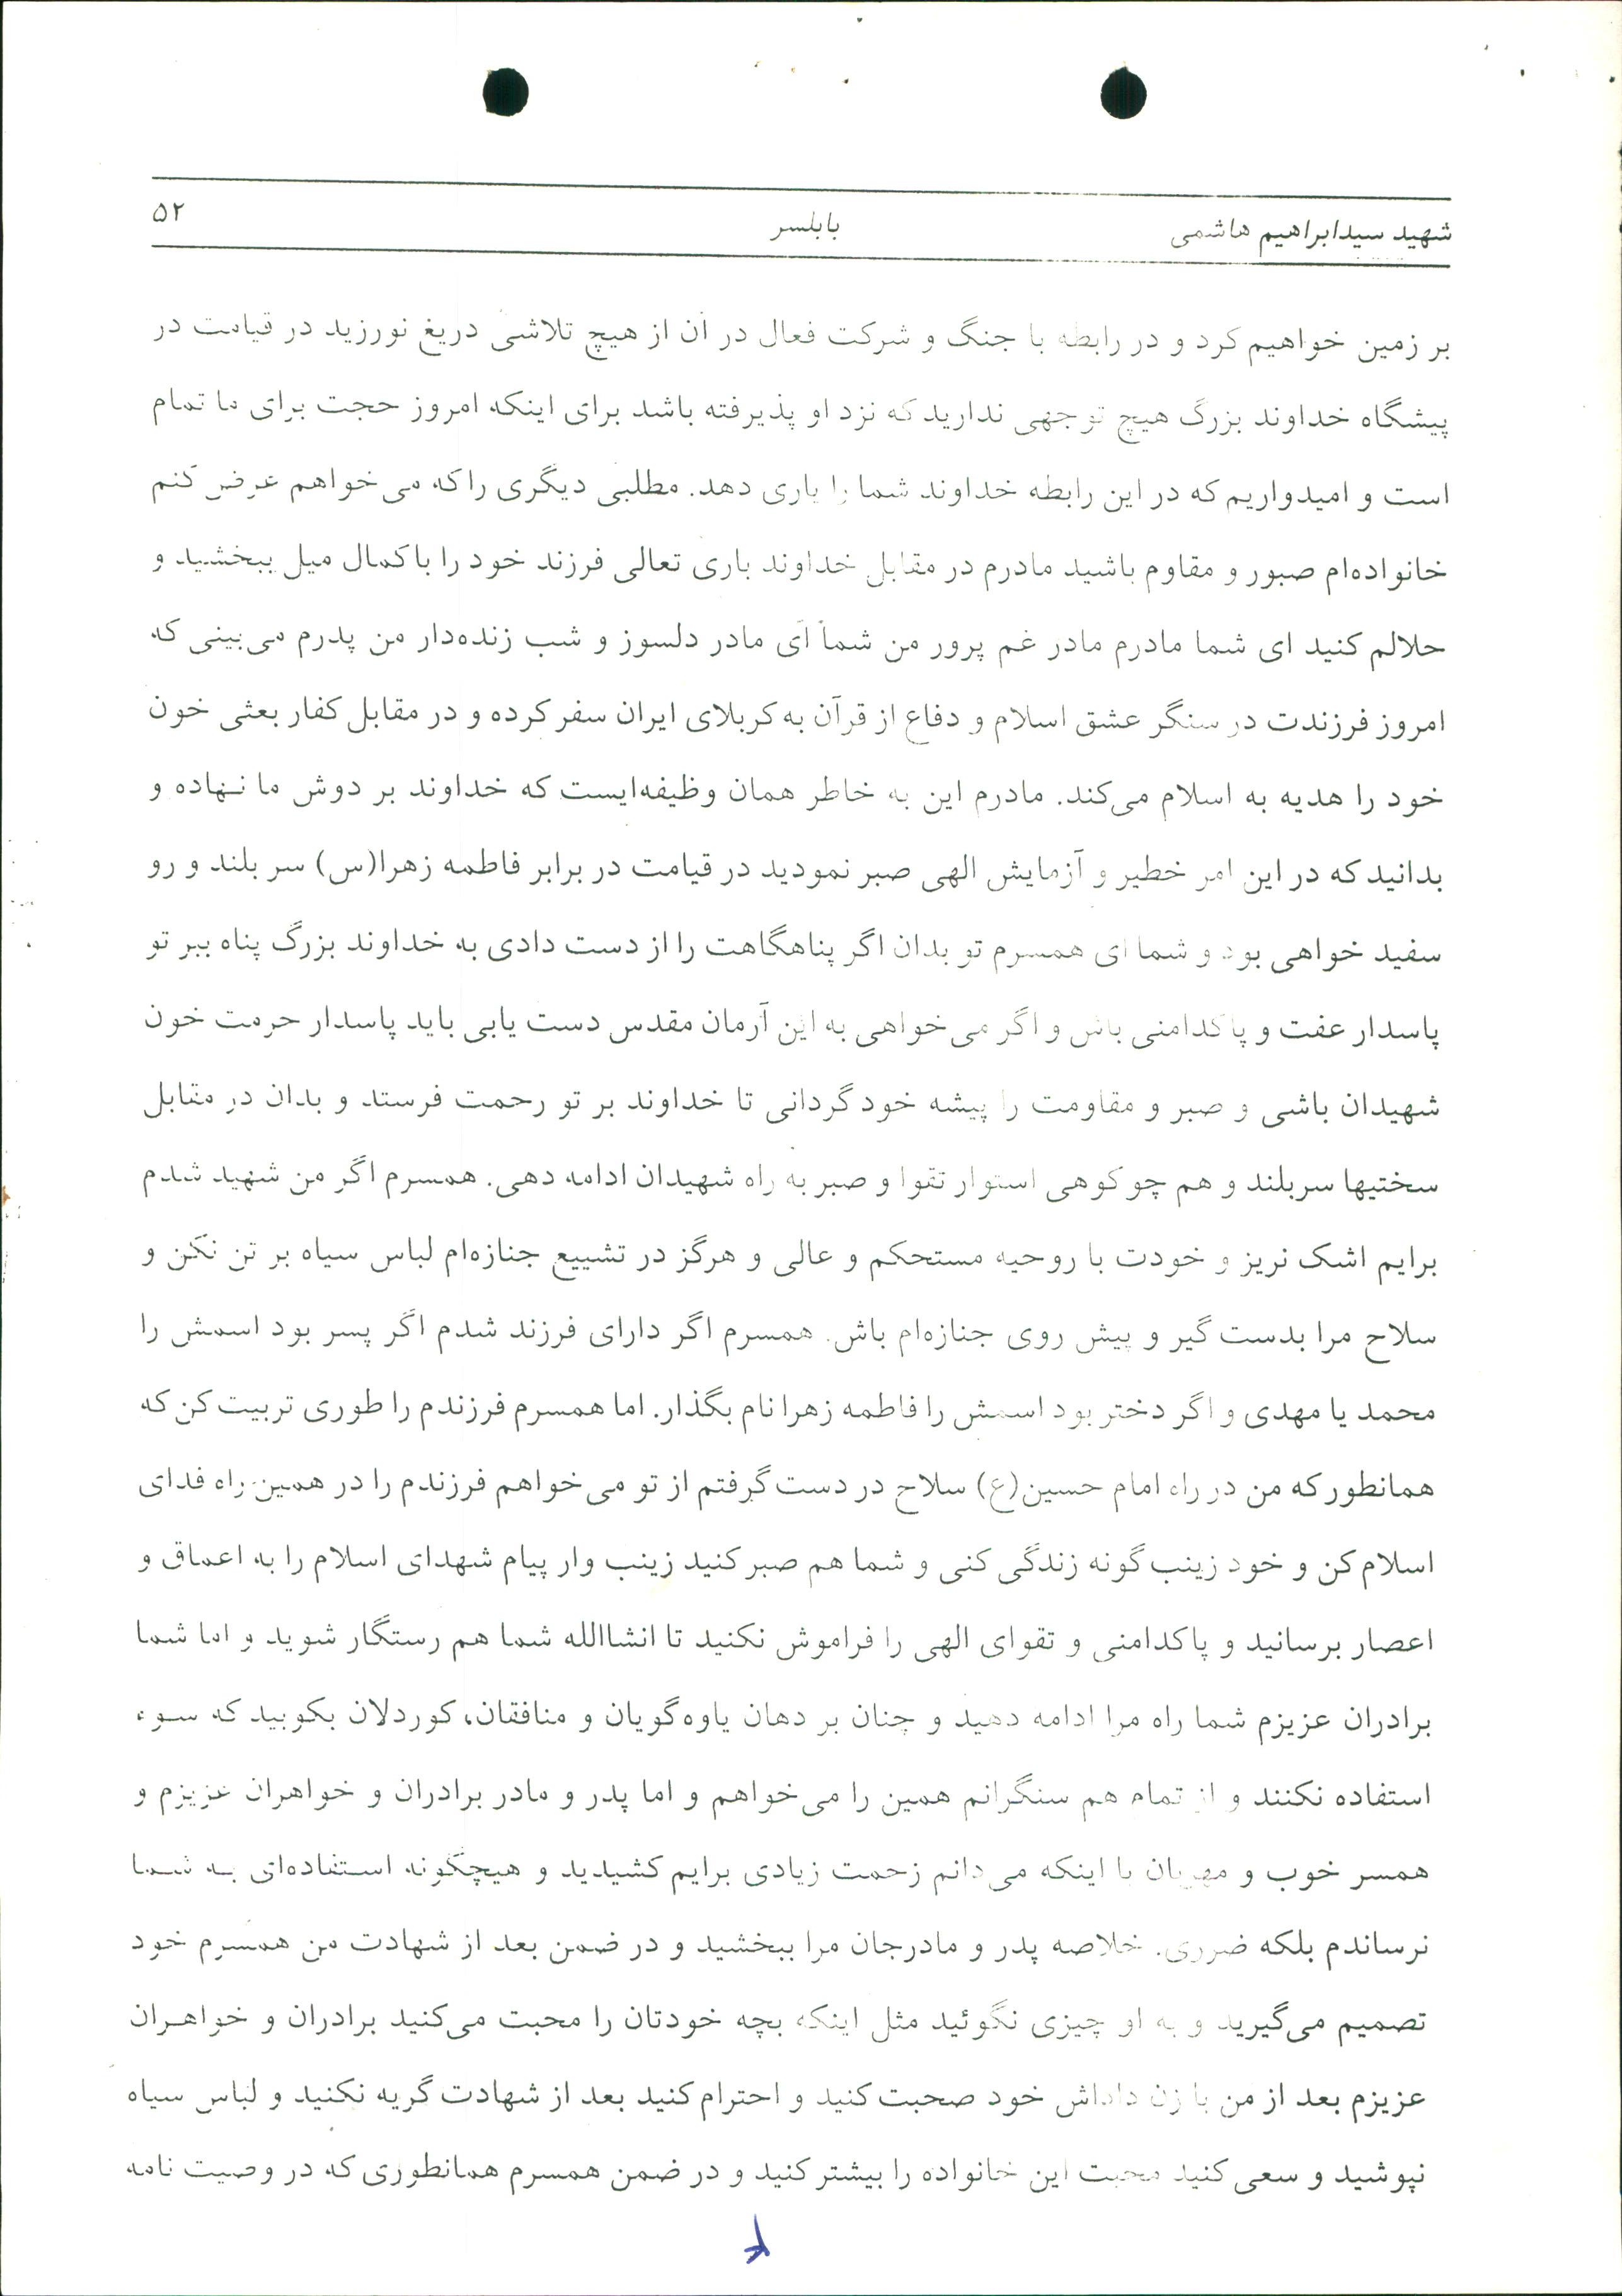 شهید سیدابراهیم هاشمی بابلسر ۵۲
بر زمین خواهیم کرد و در رابطه با جنگ و شرکت فعال در آن از هیچ تلاشی دریغ نورزید در قیامت در
پیشگاه خداوند بزرگ هیچ توجهی ندارید که نزد او پذیرفته باشد برای اینکه امروز حجت برای ما تمام
است و امیدواریم که در این رابطه خداوند شما را یاری دهد. مطلبی دیگری را که می‌خواهم عرض کنم
خانواده‌ام صبور و مقاوم باشید مادرم در مقابل خداوند باری تعالی فرزند خود را با کمال میل ببخشید و
حلالم کنید ای شما مادرم مادر غم پرور من شما ای مادر دلسوز و شب زنده‌دار من پدرم می‌بینی که
امروز فرزندت در سنگر عشق اسلام و دفاع از قرآن به کربلای ایران سفر کرده و در مقابل کفار بعثی خون
خود را هدیه به اسلام می‌کند. مادرم این به خاطر همان وظیفه‌ایست که خداوند بر دوش ما نهاده و
بدانید که در این امر خطیر و آزمایش الهی صبر نمودید در قیامت در برابر فاطمه زهرا(س) سر بلند و رو
سفید خواهی بود و شما ای همسرم تو بدان اگر پناهگاهت را از دست دادی به خداوند بزرگ پناه ببر تو
پاسدار عفت و پاکدامنی باش و اگر می‌خواهی به این آرمان مقدس دست یابی باید پاسدار حرمت خون
شهیدان باشی و صبر و مقاومت را پیشه خود گردانی تا خداوند بر تو رحمت فرستد و بدان در مقابل
سختیها سربلند و هم چو کوهی استوار تقوا و صبر به راه شهیدان ادامه دهی. همسرم اگر من شهید شدم
برایم اشک نریز و خودت با روحیه مستحکم و عالی و هرگز در تشییع جنازه‌ام لباس سیاه بر تن نکن و
سلاح مرا بدست گیر و پیش روی جنازه‌ام باش. همسرم اگر دارای فرزند شدم اگر پسر بود اسمش را
محمد یا مهدی و اگر دختر بود اسمش را فاطمه زهرا نام بگذار. اما همسرم فرزندم را طوری تربیت کن که
همانطور که من در راه امام حسین(ع) سلاح در دست گرفتم از تو می‌خواهم فرزندم را در همین راه فدای
اسلام کن و خود زینب گونه زندگی کنی و شما هم صبر کنید زینب وار پیام شهدای اسلام را به اعماق و
اعصار برسانید و پاکدامنی و تقوای الهی را فراموش نکنید تا انشاالله شما هم رستگار شوید و اما شما
برادران عزیزم شما راه مرا ادامه دهید و چنان بر دهان یاوه‌گویان و منافقان، کوردلان بکوبید که سوء
استفاده نکنند و از تمام هم سنگرانم همین را می‌خواهم و اما پدر و مادر برادران و خواهران عزیزم و
همسر خوب و مهربان با اینکه می‌دانم زحمت زیادی برایم کشیدید و هیچگونه استفاده‌ای به شما
نرساندم بلکه ضرری. خلاصه پدر و مادرجان مرا ببخشید و در ضمن بعد از شهادت من همسرم خود
تصمیم می‌گیرید و به او چیزی نگوئید مثل اینکه بچه خودتان را محبت می‌کنید برادران و خواهران
عزیزم بعد از من با زن داداش خود صحبت کنید و احترام کنید بعد از شهادت گریه نکنید و لباس سیاه
نپوشید و سعی کنید محبت این خانواده را بیشتر کنید و در ضمن همسرم همانطوری که در وصیت نامه